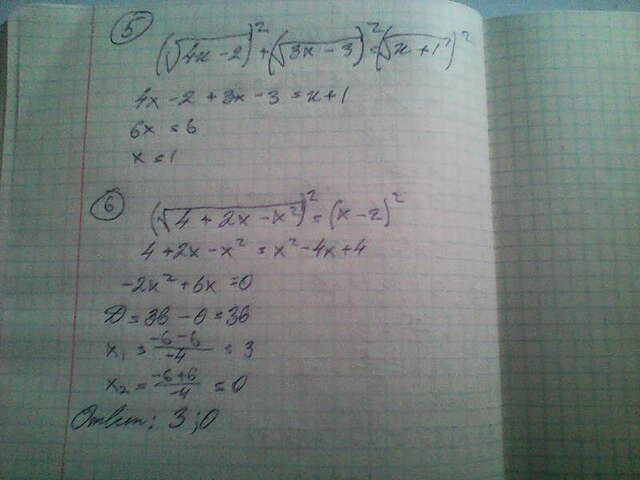 5
(√4x-2)² + (√3x-3)² = (√x+1)²
4x-2+3x-3=x+1
6x=6
x=1
6
(√4+2x-x²)² = (x-2)²
4+2x-x² = x²-4x+4
-2x²+6x=0
D=36-0=36
x₁ = -6-6/-4 = 3
x₂ = -6+6/-4 = 0
Ответ: 3;0